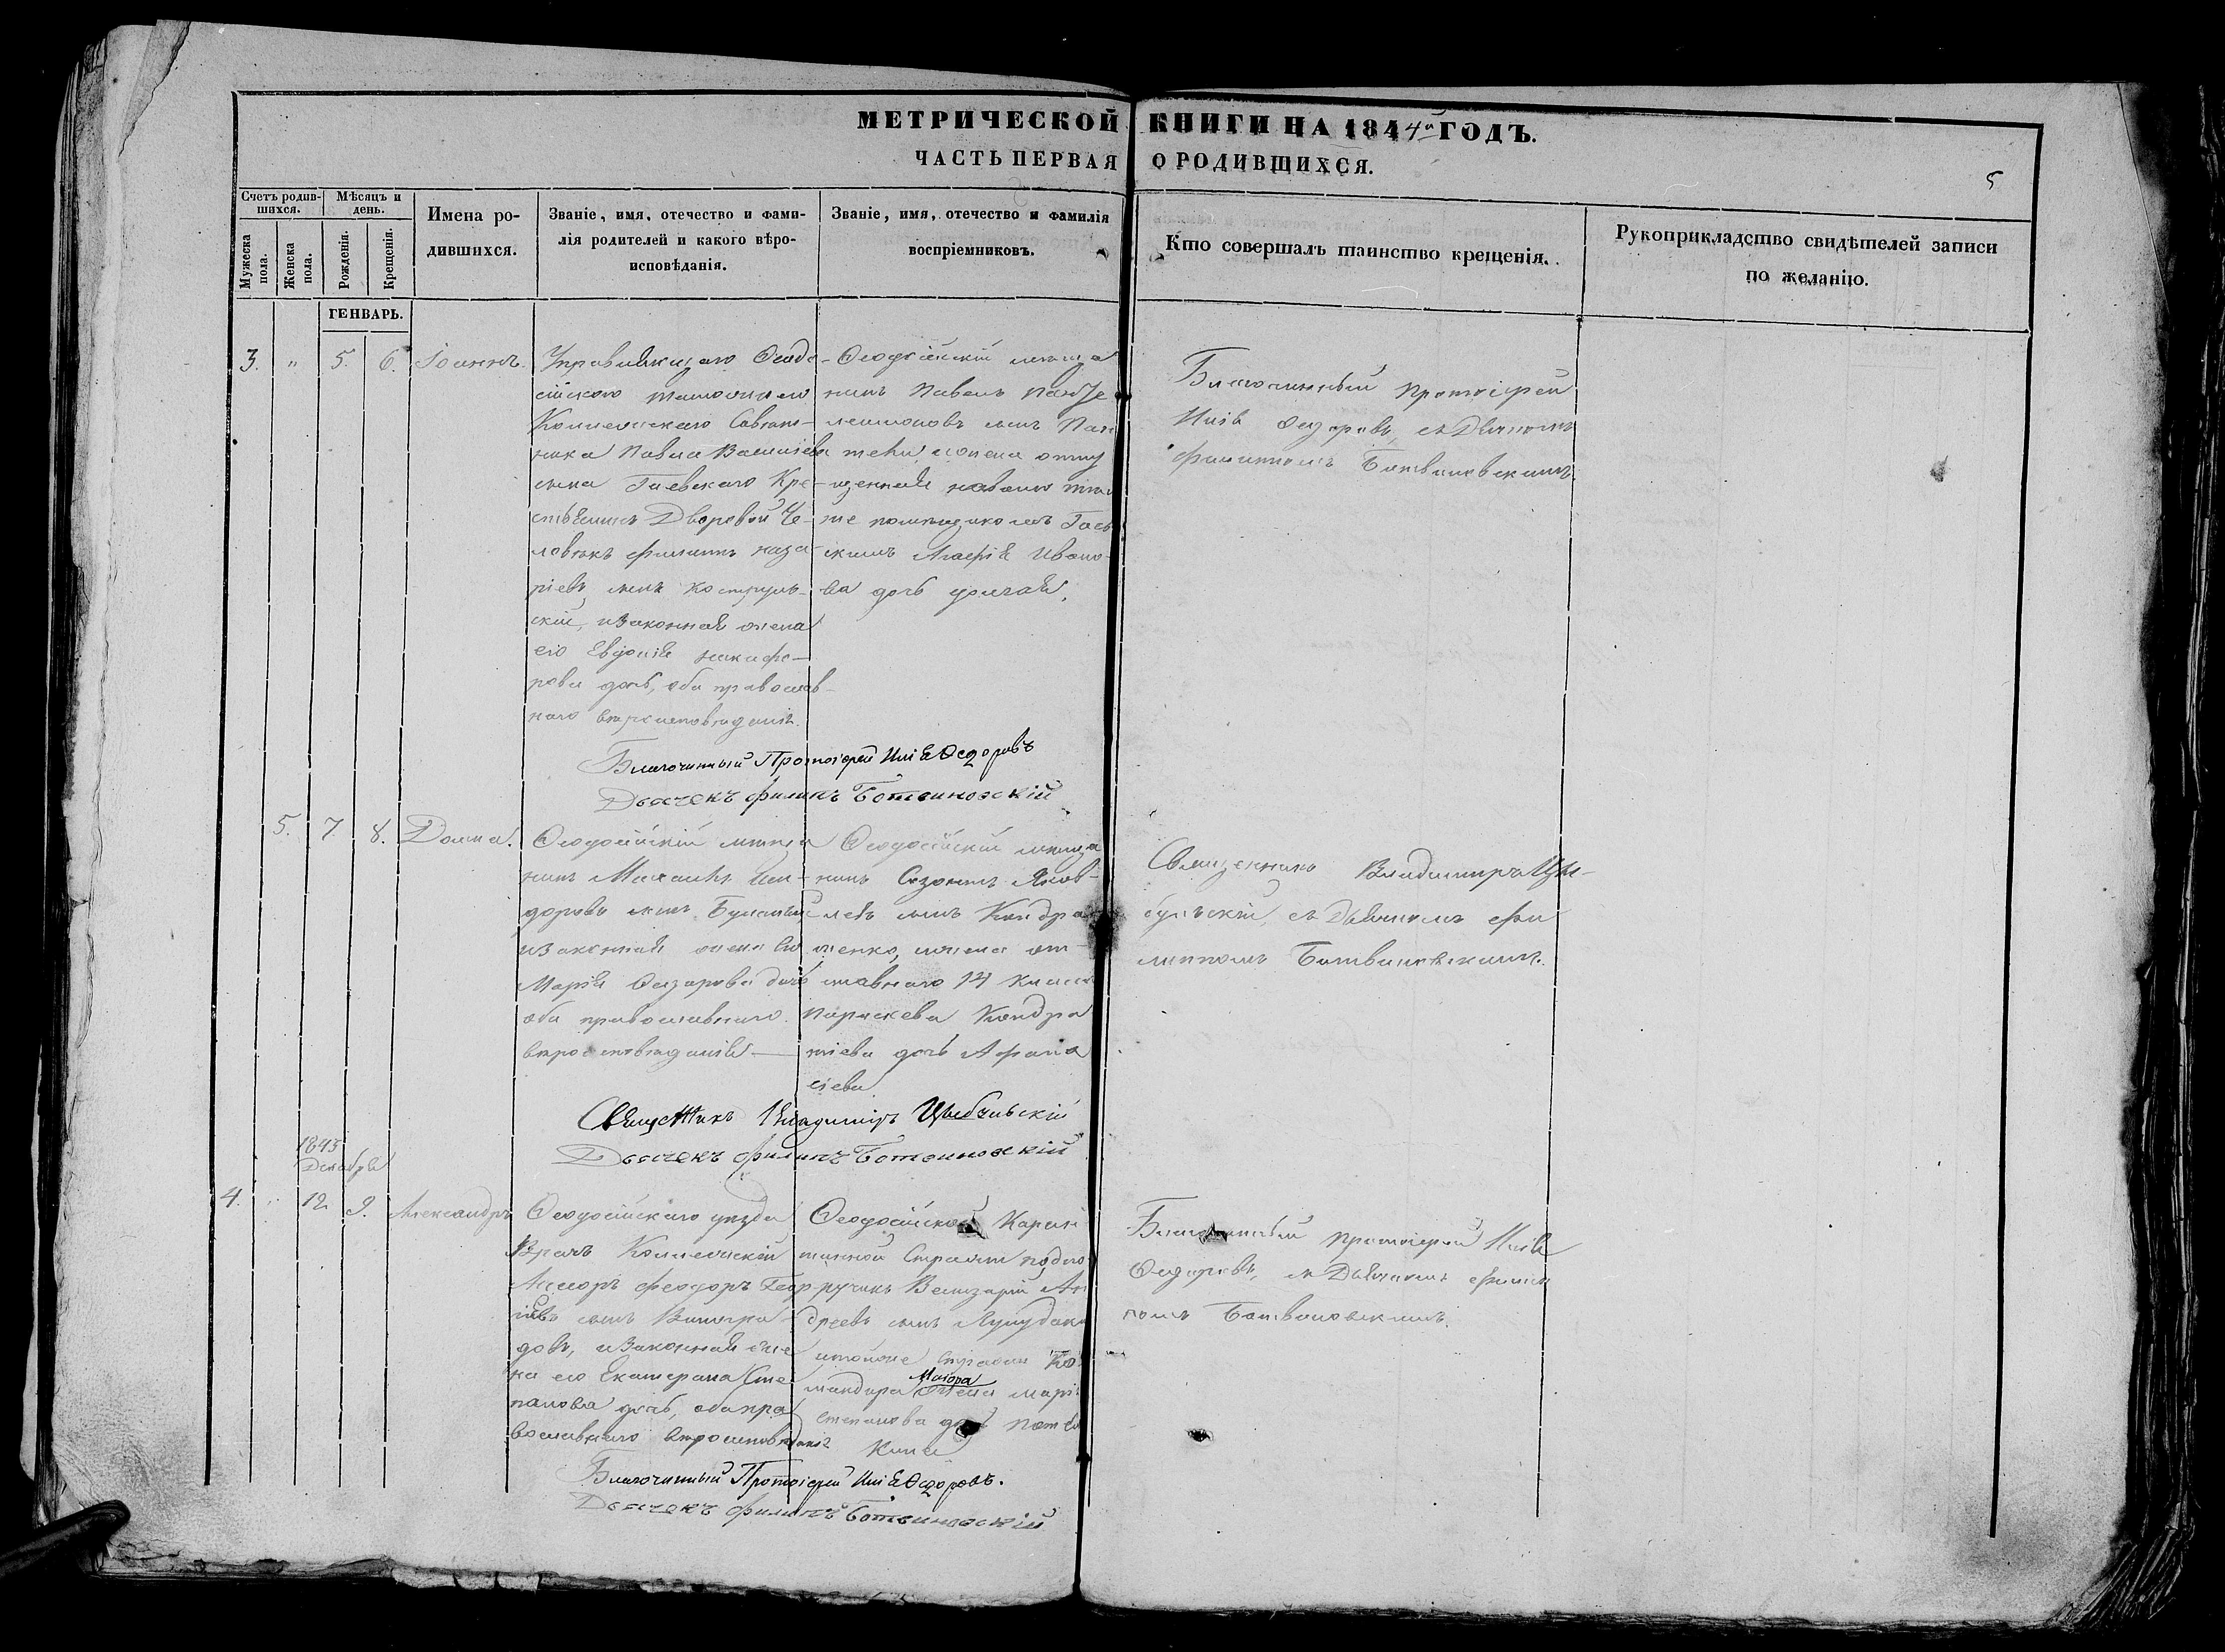 МЕТРИЧЕСКОЙ КНИГИ НА 1844й ГОДЪ.
ЧАСТЬ ПЕРВАЯ О РОДИВШИХСЯ.
5
Счетъ родив-
шихся.
Мѣсяцъ и
день.
Мужеска
пола.
Женска
пола.
Рожденія.
Крещенія.
Имена ро-
дившихся.
Званіе, имя, отечество и фами-
лія родителей и какого вѣро-
исповѣданія.
Званіе, имя, отечество и фамилія
воспріемниковъ.
Кто совершалъ таинство крещенія.
Рукоприкладство свидѣтелей записи
по желанію.
ГЕНВАРЬ.
3. " 5. 6. Іоаннъ.
Управляющаго Ѳеодо-
сійскою таможнею
Коллежскаго Совѣт-
ника Павла Васильева
сына Гаевскаго Кре-
Дворовой Че-
ловѣкъ Филиппъ Наза-
ріевъ сынъ
скій, и законная жена
его Евдокія Никифо-
рова дочь, оба православ-
наго вѣроисповѣданія.
Ѳеодосійскій мѣща
нинъ Павелъ Пан
сынъ Пан
жена отпу
щенная на волю
же помѣщикомъ Гаев
скимъ Агафія Ивано-
ва дочь
Благочинный Протоіерей
Илія Ѳедоровъ, съ Дьячкомъ
Филиппомъ Ботвиновскимъ.
Благочинный Протоіерей Илія Ѳедоровъ
Дьячекъ Филипъ Ботвиновскій
5. 7. 8. Домна.
Ѳеодосійскій мѣща
нинъ Михаилъ Иси-
доровъ сынъ
и законная жена его
Марія Ѳедорова дочь
оба православнаго
вѣроисповѣданія
Ѳеодосійскій мѣща
нинъ Созонтъ Яков-
левъ сынъ Кондра
тенко, и жена от-
ставнаго 14 класса
Параскева Кондра
тіева дочь Афана
сіева
Священникъ Владиміръ Цы-
бульскій, съ Дьячкомъ Фи
липпомъ Ботвиновскимъ.
Священникъ Владиміръ Цыбульскій
Дьячекъ Филипъ Ботвиновскій
1843
Декабря
4. " 12. 9. Александръ
Ѳеодосійскаго уѣзда
Врачъ Коллежскій
Ассесоръ Феодоръ Геор
гіевъ сынъ Виногра-
довъ, и законная же
на его Екатерина Сте
панова дочь, оба пра
вославнаго вѣроисповѣданія
Ѳеодосійской Каран
тинной Стражи подпо
ручикъ Велизарій Ан
дреевъ сынъ
и той же стражи Ко
мандира Маіора жена Марія
Степанова дочь
кина
Благочинный Протоіерей Илія
Ѳедоровъ, съ Дьячкомъ Филип
помъ Ботвиновскимъ.
Благочинный Протоіерей Илія Ѳедоровъ.
Дьячекъ Филипъ Ботвиновскій